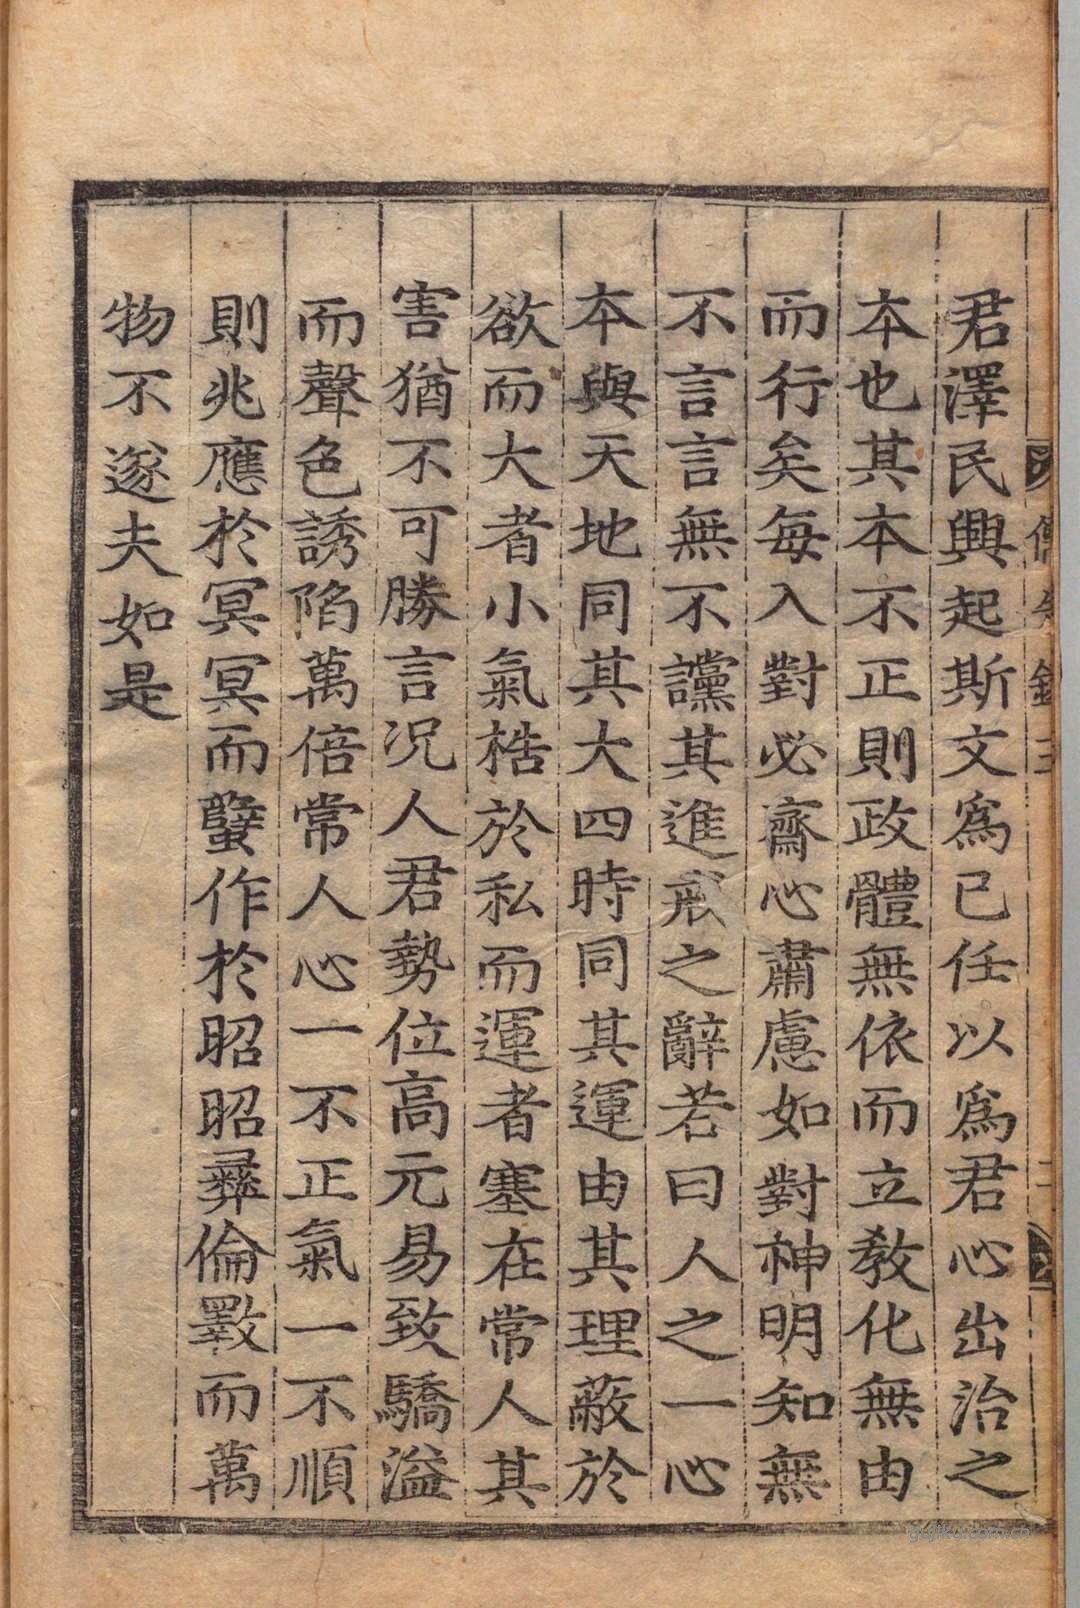 君澤民興起斯文爲已任以爲君心出治之
本也其本不正則政體無依而立教化無由
而行矣每入對必齋心肅慮如對神明知無
不言言無不讜其進戒之辭若曰人之一心
本與天地同其大四時同其運由其理蔽於
欲而大者小氣梏於私而運者塞在常人其
害猶不可勝言况人君勢位高元易致驕溢
而聲色誘陷萬倍常人心一不正氣一不順
則兆應於冥冥而蠥作於昭昭彛倫斁而萬
物不遂夫如是